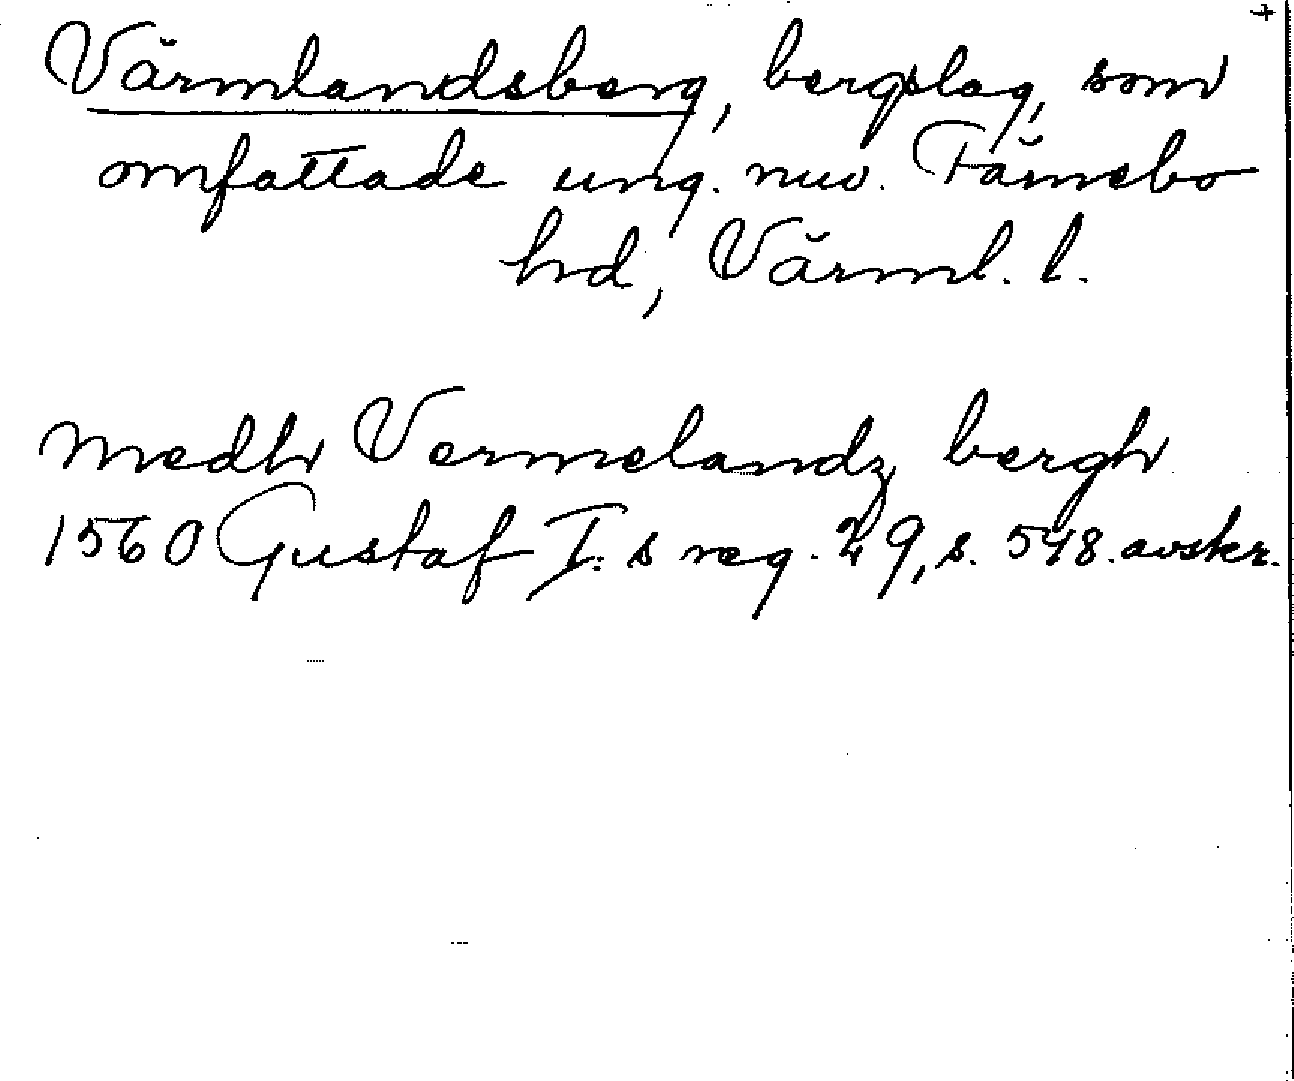 +
Värmlandsberg, bergslag, som
omfattade ung. nuv. Färnebo
hd, Värml. l.
medh Vermelandz bergh
1560 Gustaf I:s reg. 29, s. 548. avskr.